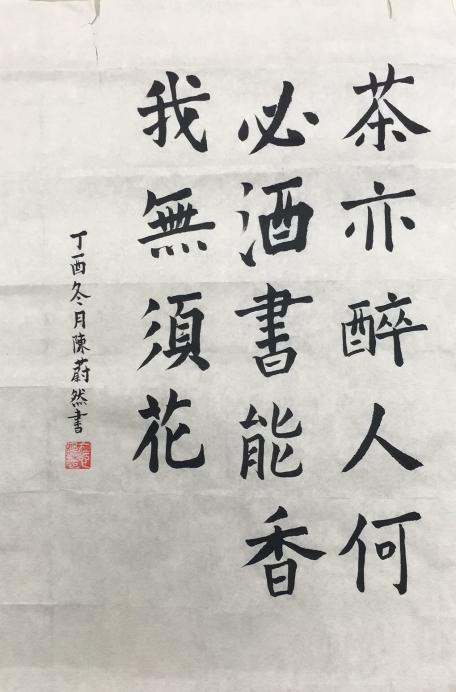 茶亦醉人何
必酒書能香
我無須花
丁酉冬月陳蔚然書